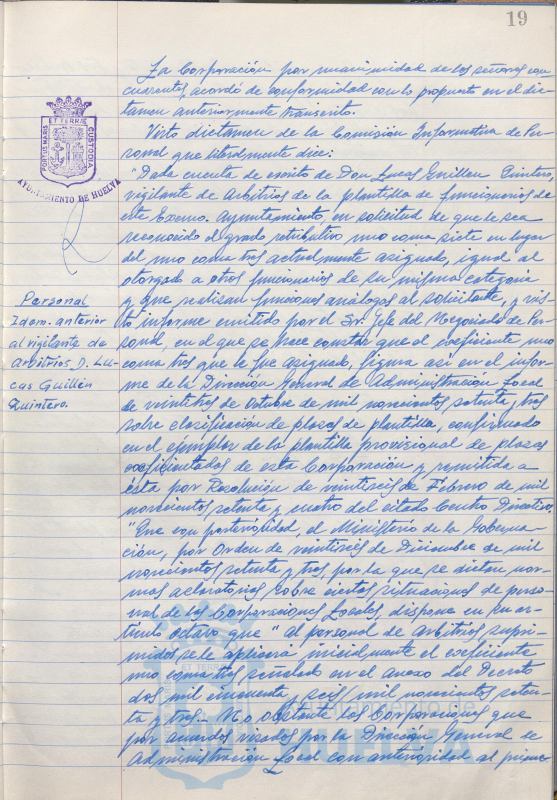 19
La Corporación por unanimidad de los señores con-
currentes, acordó de conformidad con lo propuesto en el dic-
tamen anteriormente transcrito.
Visto dictamen de la Comisión Informativa de Per-
sonal que literalmente dice:
"Dada cuenta de escrito de Don Lucas Guillen Quintero,
vigilante de Arbitrios de la plantilla de funcionarios de
este Excmo. Ayuntamiento, en solicitud de que le sea
reconocido el grado retributivo uno coma siete en lugar
del uno coma tres actualmente asignado, igual al
otorgado a otros funcionarios de su misma categoria
y que realizan funciones análogas al solicitante, y vis-
to informe emitido por el Sr. Jefe del Negociado de Per-
sonal, en el que se hace constar que el coeficiente uno
coma tres que le fue asignado, figura asi en el infor-
me de la Dirección General de Administración Local
de veintitres de Octubre de mil novecientos setenta y tres
sobre clasificación de plazas de plantilla, confirmado
en el ejemplar de la plantilla provisional de plazas
coeficientadas de esta Corporación y remitida a
ésta por Resolución de veintiseis de Febrero de mil
novecientos setenta y cuatro del citado Centro Directivo,
"Que con posterioridad, el Ministerio de la Goberna-
ción, por Orden de veintiseis de Diciembre de mil
novecientos setenta y tres, por la que se dictan nor-
mas aclaratorias sobre ciertas situaciones de perso-
nal de las Corporaciones Locales, dispone en su ar-
tículo octavo que "al personal de Arbitrios supri-
midos se le aplicará inicialmente el coeficiente
uno coma tres señalado en el anexo del Decreto
dos mil cincuenta y seis/mil novecientos seten-
ta y tres.- No obstante las Corporaciones que
por acuerdos visados por la Dirección General de
Administración Local con anterioridad al prime-
PORTUS MARIS
ET TERRAE
CUSTODIA
AYUNTAMIENTO DE HUELVA
Personal
Idem. anterior
al vigilante de
Arbitrios, D. Lu-
cas Guillén
Quintero.
Ayuntamiento de
HUELVA